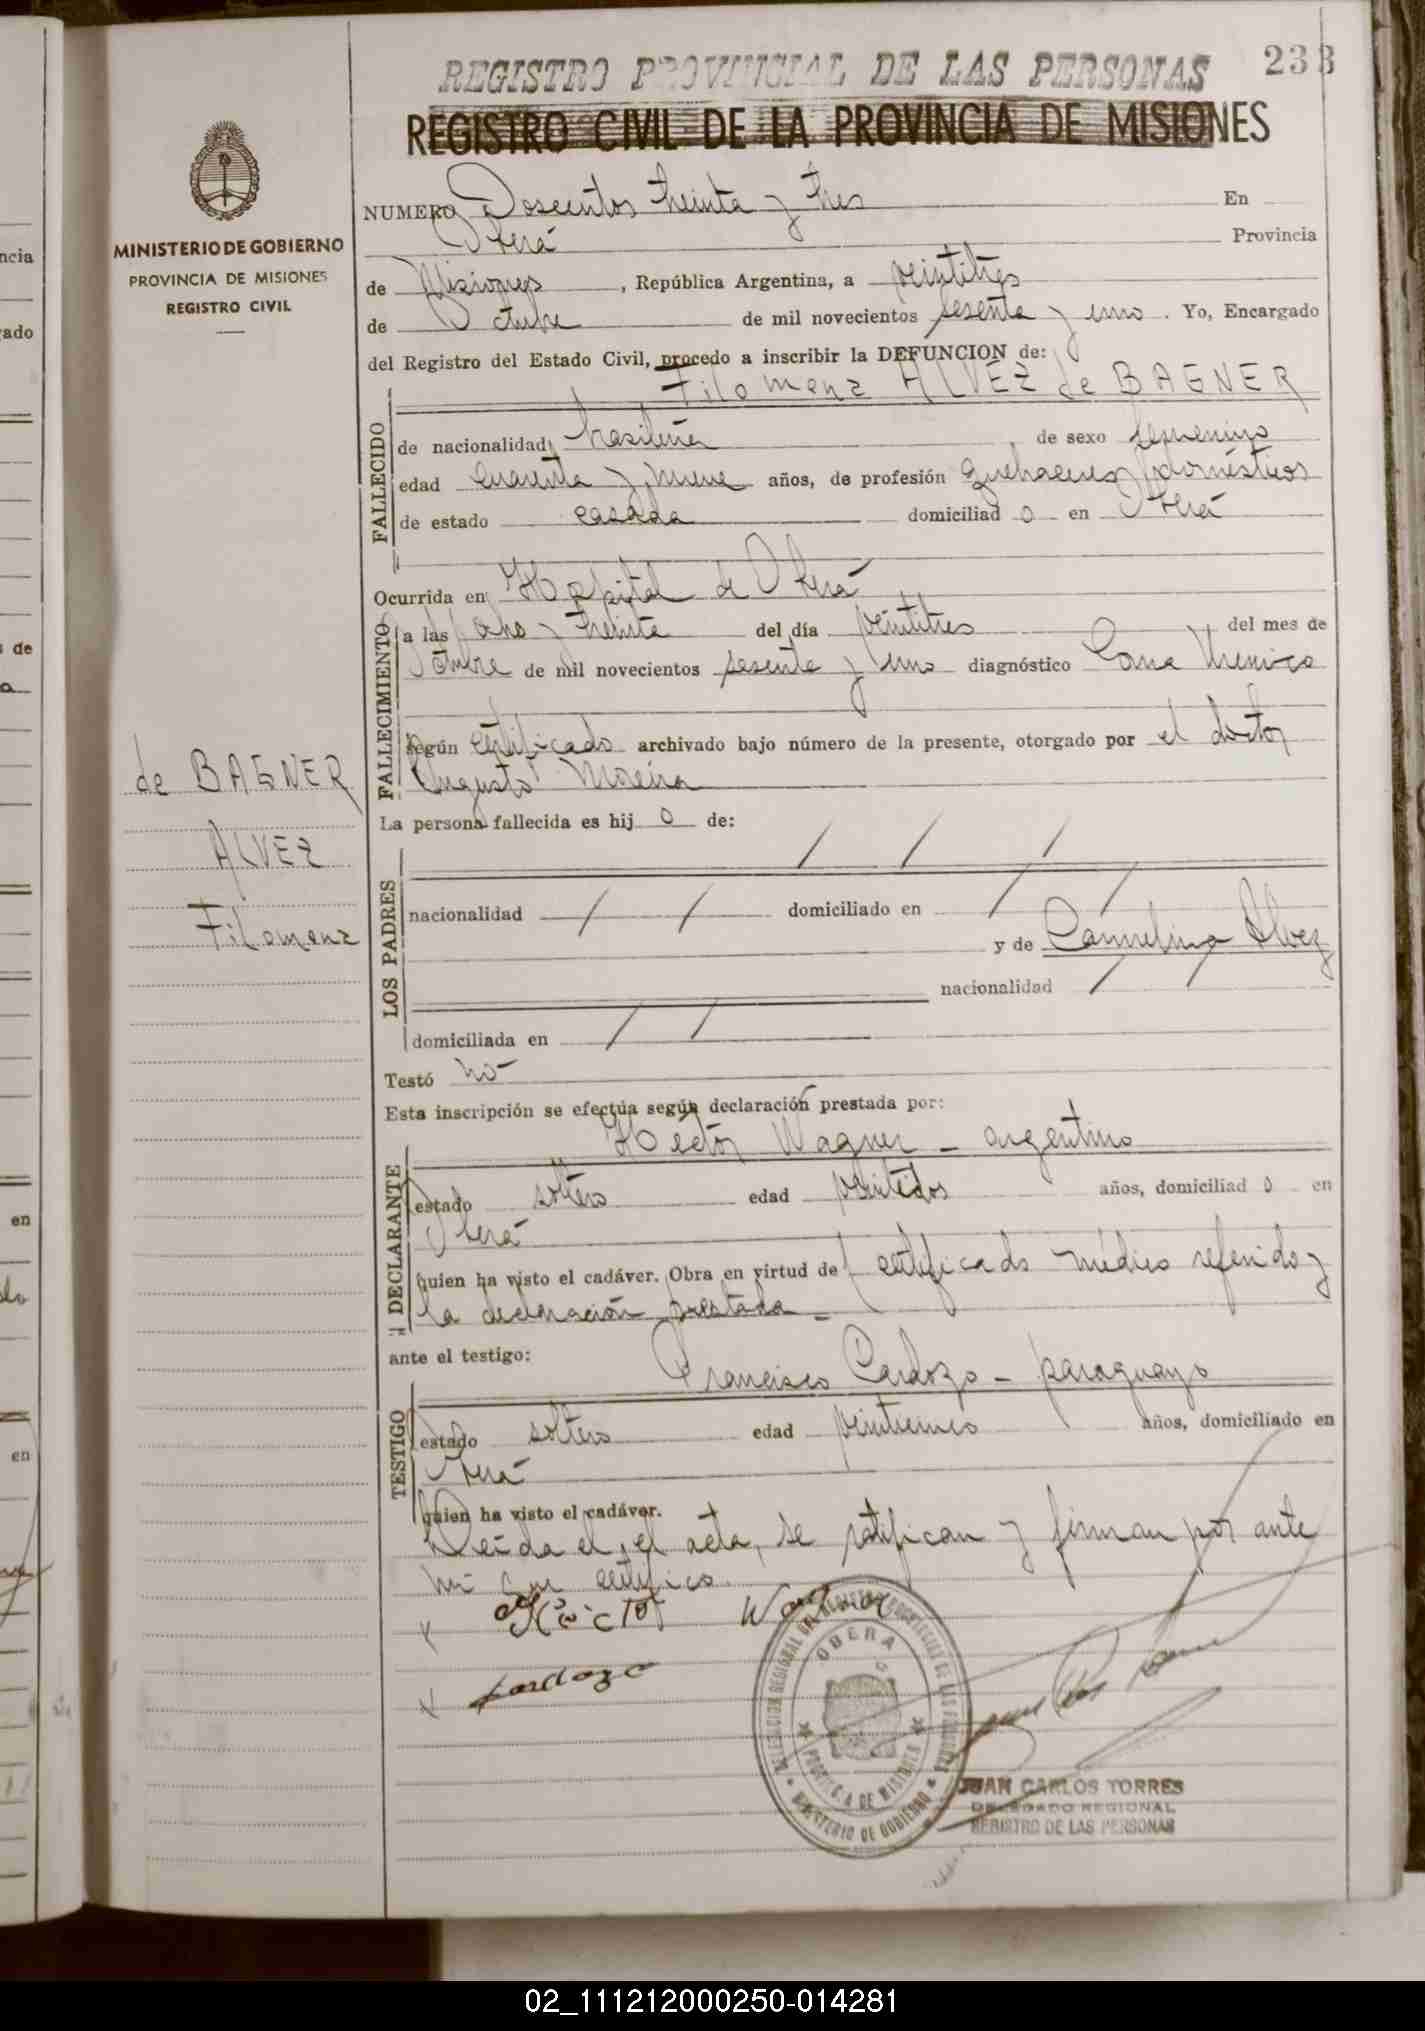 REGISTRO PROVINCIAL DE LAS PERSONAS
233
REGISTRO CIVIL DE LA PROVINCIA DE MISIONES
MINISTERIO DE GOBIERNO
PROVINCIA DE MISIONES
REGISTRO CIVIL
NUMERO Doscientos treinta y tres En
Oberá Provincia
de Misiones, República Argentina, a veintitres
de Octubre de mil novecientos sesenta y uno. Yo, Encargado
del Registro del Estado Civil, procedo a inscribir la DEFUNCION de:
Filomena ALVEZ de BAGNER
FALLECIDO
de nacionalidad brasileña, de sexo femenino
edad cuarenta y nueve años, de profesión quehaceres domésticos
de estado casada domiciliad o en Oberá
Ocurrida en Hospital de Oberá
FALLECIMIENTO
a las ocho y treinta del día veintitres del mes de
Octubre de mil novecientos sesenta y uno diagnóstico Coma Uremico
según certificado archivado bajo número de la presente, otorgado por el doctor
Augusto Moreira
de BAGNER
ALVEZ
Filomena
La persona fallecida es hij o de:
LOS PADRES
nacionalidad / / domiciliado en / /
y de Carmelina Alvez
nacionalidad / /
domiciliada en / /
Testó no
Esta inscripción se efectúa según declaración prestada por:
Héctor Wagner - argentino
DECLARANTE
estado soltero edad veintidos años, domiciliad o en
Oberá
quien ha visto el cadáver. Obra en virtud de certificado médico referido y
la declaración prestada -
ante el testigo:
Francisco Cardozo - paraguayo
TESTIGO
estado soltero edad veinticinco años, domiciliado en
Oberá
quien ha visto el cadáver.
Leída el acta, se ratifican y firman por ante
mi que certifico.
x Héctor Wagner
x Cardozo
DELEGACION REGIONAL DEL REGISTRO PROVINCIAL DE LAS PERSONAS
OBERA
PROVINCIA DE MISIONES
MINISTERIO DE GOBIERNO
JUAN CARLOS TORRES
DELEGADO REGIONAL
REGISTRO DE LAS PERSONAS
02_111212000250-014281